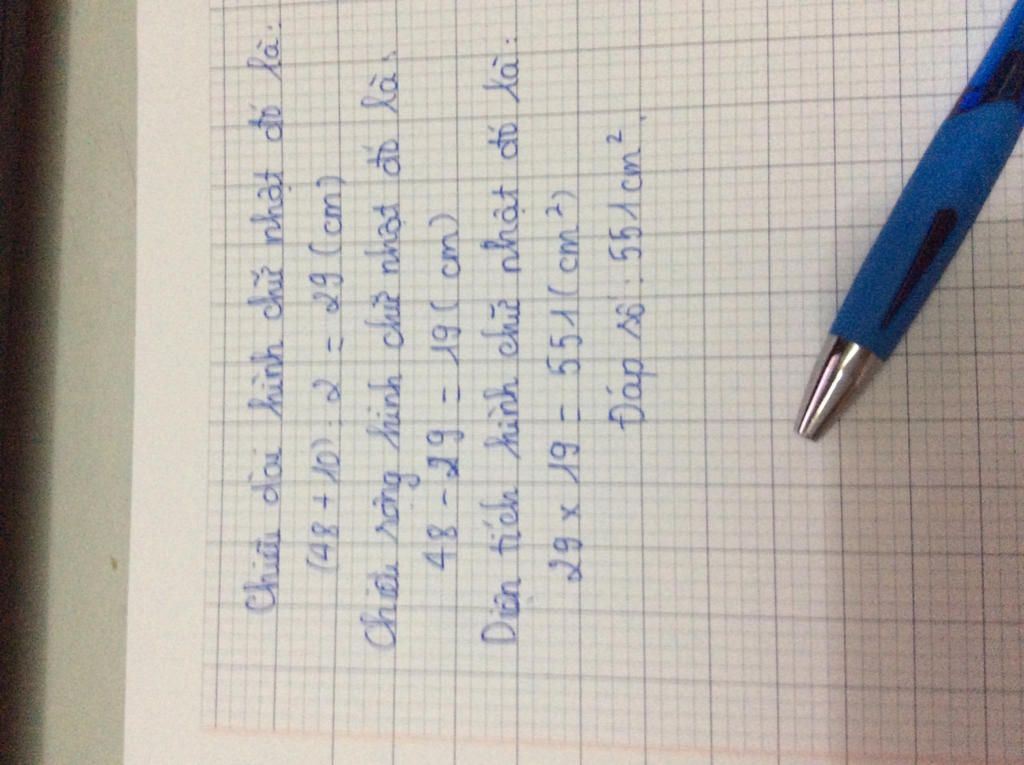 Chiều dài hình chữ nhật đó là:
(48 + 10) : 2 = 29 (cm)
Chiều rộng hình chữ nhật đó là:
48 - 29 = 19 (cm)
Diện tích hình chữ nhật đó là:
29 x 19 = 551 (cm²)
Đáp số : 551 cm².